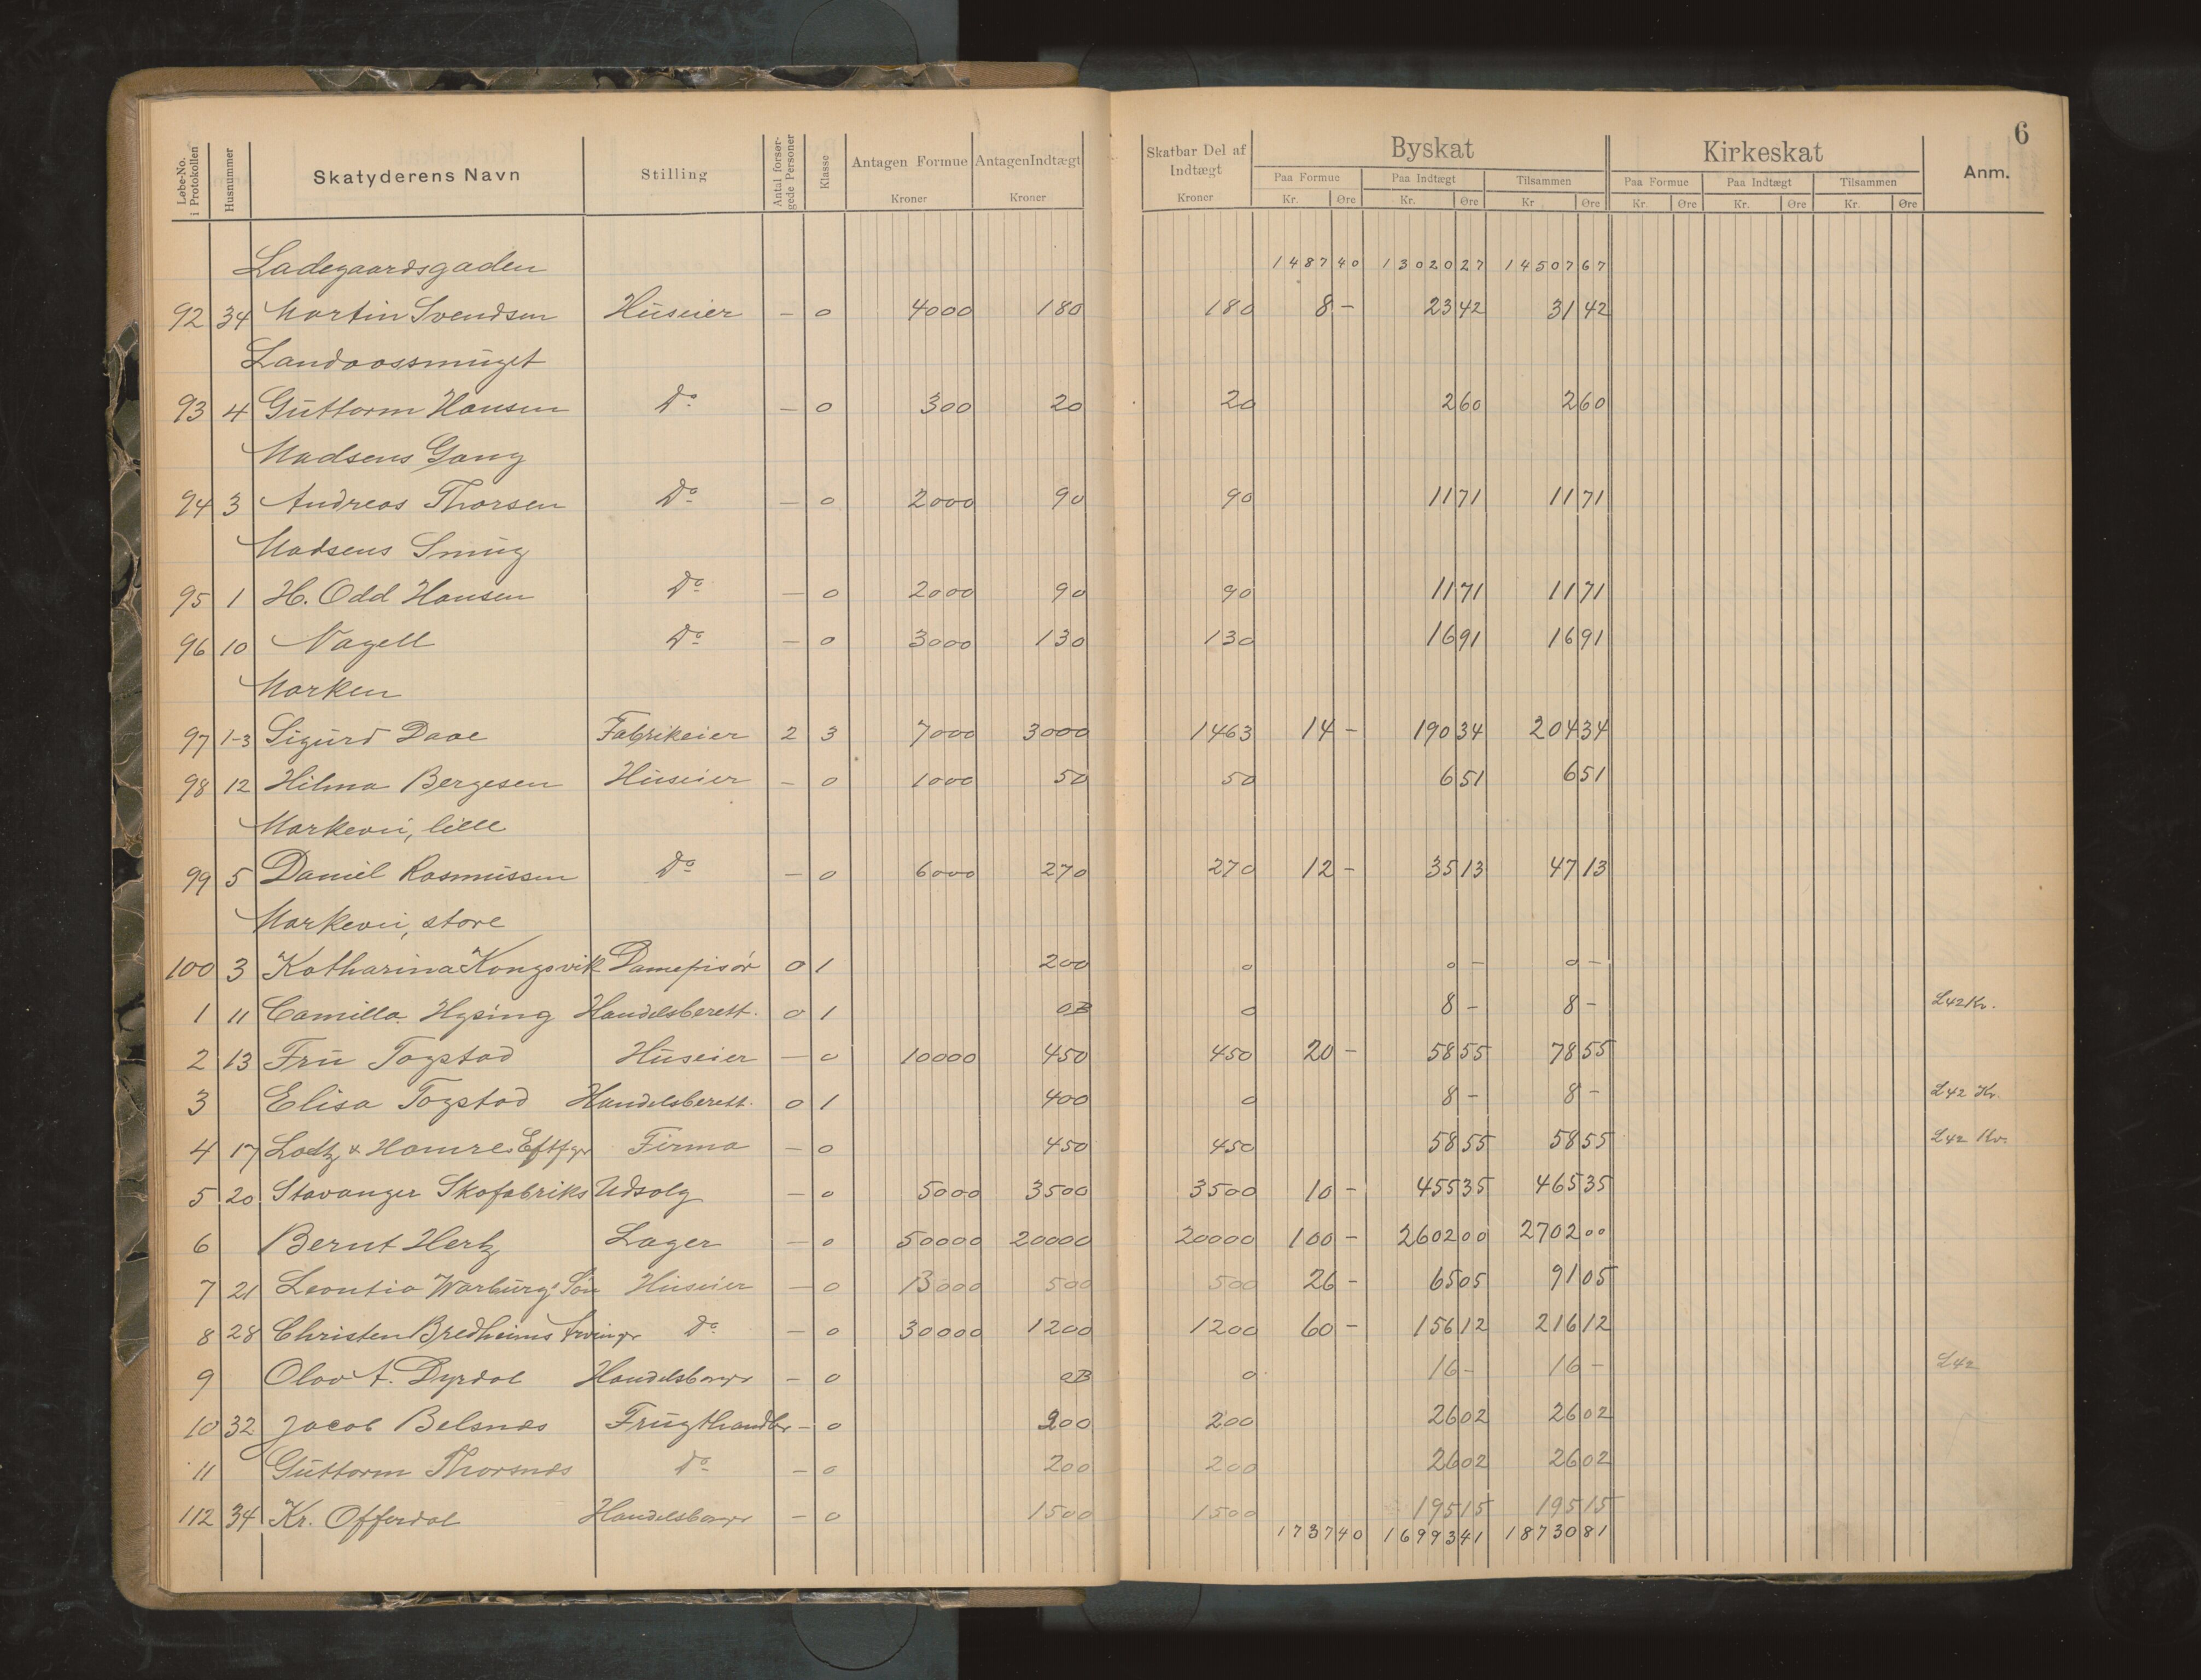 6
Løbe-No. i Protokollen Husnummer Skatyderens Navn Stilling Antal forsørgede Personer Klasse Antagen Formue Kroner Antagen Indtægt Kroner Skatbar Del af Indtægt Kroner Byskat Paa Formue Kr. Øre Paa Indtægt Kr. Øre Tilsammen Kr Øre Kirkeskat Paa Formue Kr. Øre Paa Indtægt Kr. Øre Tilsammen Kr. Øre Anm.
Ladegaardsgaden 1487 40 13020 27 14507 67
92 34 Martin Svendsen Huseier — 0 4000 180 180 8 - 23 42 31 42
Landaassmuget
93 4 Guttorm Hansen Do — 0 300 20 20 2 60 2 60
Madsens Gang
94 3 Andreas Thorsen Do — 0 2000 90 90 11 71 11 71
Madsens Smug
95 1 H. Odd Hansen Do — 0 2000 90 90 11 71 11 71
96 10 Nagell Do — 0 3000 130 130 16 91 16 91
Marken
97 1-3 Sigurd Daae Fabrikeier 2 3 7000 3000 1463 14 - 190 34 204 34
98 12 Hilma Bergesen Huseier — 0 1000 50 50 6 51 6 51
Markevei, lille
99 5 Daniel Rasmussen Do — 0 6000 270 270 12 - 35 13 47 13
Markevei, store
100 3 Katharina Kongsvik Damefrisør 0 1 200 0 0 - 0 -
1 11 Camilla Hysing Handelsberett. 0 1 0B 0 8 - 8 - L42 Kr.
2 13 Fru Togstad Huseier — 0 10000 450 450 20 - 58 55 78 55
3 Elisa Togstad Handelsberett. 0 1 400 0 8 - 8 - L42 Kr.
4 17 & Hamres Eftfgr Firma — 0 450 450 58 55 58 55 L42 Kr.
5 20 Stavanger Skofabriks Udsalg — 0 5000 3500 3500 10 - 455 35 465 35
6 Bernt Hertz Lager — 0 50000 20000 20000 100 - 2602 00 2702 00
7 21 Leontia Warburg's Søn Huseier — 0 13000 500 500 26 - 65 05 91 05
8 28 Christen Bredheims Arvinger Do — 0 30000 1200 1200 60 - 156 12 216 12
9 Olav A. Dyrdal Handelsborger — 0 0B 0 16 - 16 - L42
10 32 Jacob Belsnes Frugthandler — 0 200 200 26 02 26 02
11 Guttorm Thorsnes Do — 0 200 200 26 02 26 02
112 34 Kr. Offerdal Handelsborger — 0 1500 1500 195 15 195 15
1737 40 16993 41 18730 81